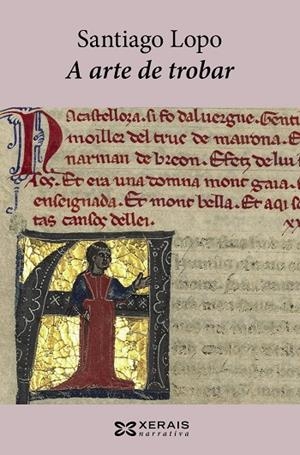 Santiago Lopo
A arte de trobar
Na castelloza. si fo daluergne. Gentil
moiller del truc de mairona. E
narman de breon. E fetz de lui
ços. Et era una domna mout gaia.
enseignada. Et mout bella. Et aqi
tas cansos dellei.
XERAIS
narrativa